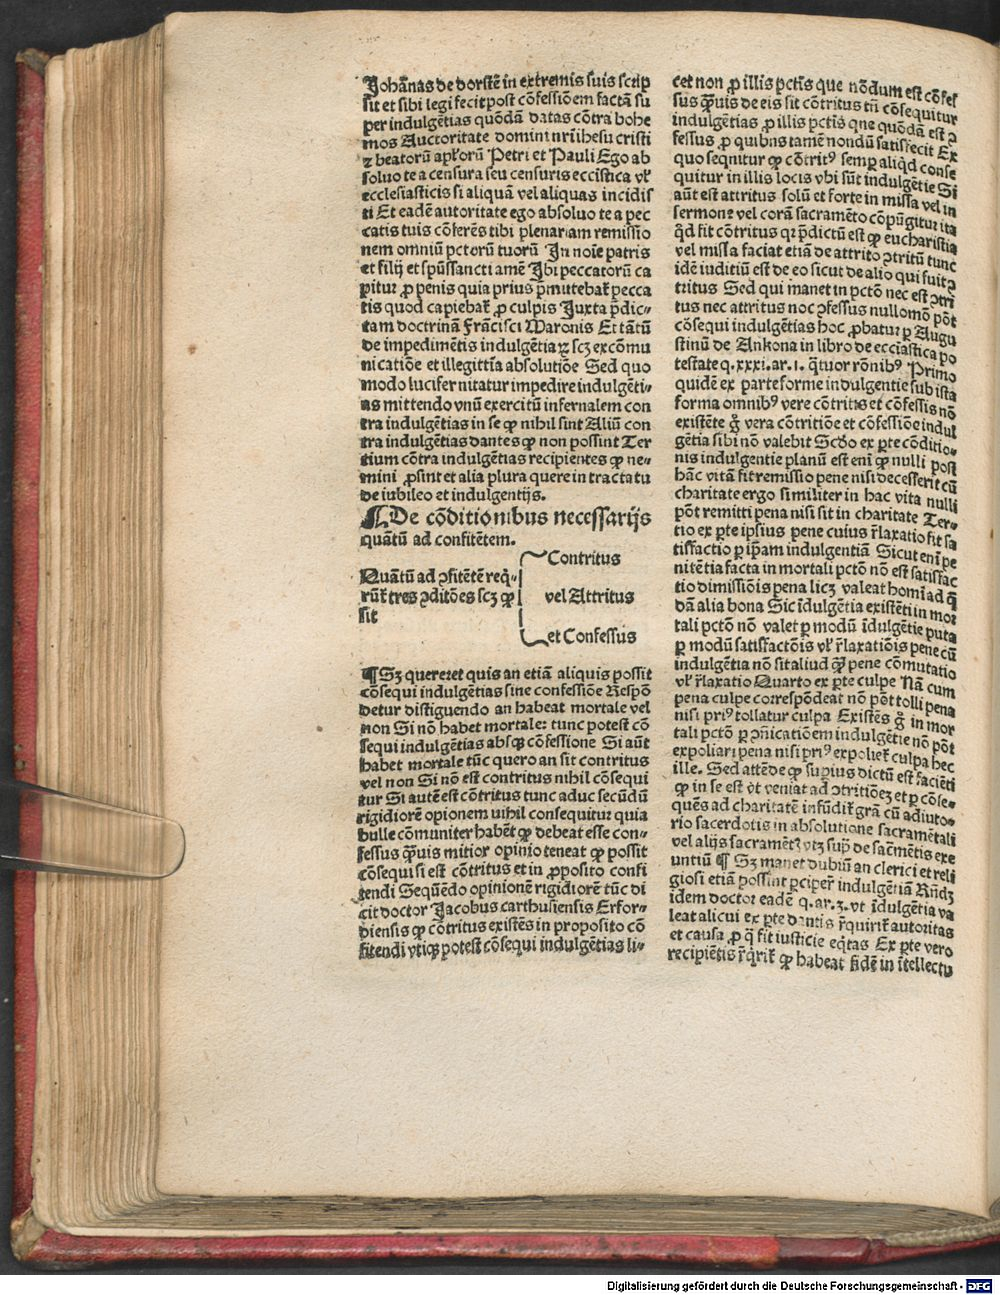 Johānas de dorstē in extremis suis scrip
sit et sibi legi fecit post cōfessiōem factā su
per indulgētias quōdā datas cōtra bohe
mos Auctoritate domini nr̄i ihesu cristi
⁊ beatorū apl̓orū Petri et Pauli Ego ab
soluo te a censura seu censuris eccīstica vl̓
ecclesiasticis si aliquā vel aliquas incidis
ti Et eadē autoritate ego absoluo te a pec
catis tuis cōferēs tibi plenariam remissio
nem omniū pctorū tuorū In noīe patris
et filij et spūssancti amē Ibi peccatorū ca
pitur ꝓ penis quia prius p̄mutebat̄ pecca
tis quod capiebat̄ ꝓ culpis Juxta p̄dic⸗
tam doctrinā Frācisci Maronis Et tātū
de impedimētis indulgētiaꝝ scꝫ excōmu
nicatiōe et illegittīa absolutiōe Sed quo
modo lucifer nitatur impedire indulgēti⸗
as mittendo vnū exercitū infernalem con
tra indulgētias in se ꝙ nihil sint Aliū con
tra indulgētias dantes ꝙ non possint Ter
tium cōtra indulgētias recipientes ꝙ ne⸗
mini ꝓsint et alia plura quere in tractatu
de iubileo et indulgentijs.
¶ De cōditionibus necessarijs
quātū ad confitētem.
Quātū ad ꝯfitētē req̇⸗
rūt̄ tres ꝯditōes scꝫ ꝙ
sit
Contritus
vel Attritus
et Confessus
¶ Sꝫ quereret quis an etiā aliquis possit
cōsequi indulgētias sine confessiōe Respō
detur distiguendo an habeat mortale vel
non Si nō habet mortale: tunc potest cō
sequi indulgētias absqꝫ cōfessione Si aūt
habet mortale tūc quero an sit contritus
vel non Si nō est contritus nihil cōsequi
tur Si autē est cōtritus tunc aduc secūdū
rigidiorē opionem nihil consequitur quia
bulle cōmuniter habēt ꝙ debeat esse con⸗
fessus q̄uis mitior opinio teneat ꝙ possit
cōsequi si est cōtritus et in ꝓposito confi
tendi Sequēdo opinionē rigidiorē tūc di
cit doctor Jacobus carthusiensis Erfor⸗
diensis ꝙ cōtritus existēs in proposito cō
fitendi vtiqꝫ potest cōsequi indulgētias li⸗
cet non ꝓ illis pctīs que nōdum est cōfes
sus q̄uis de eis sit cōtritus tn̄ cōsequitur
indulgētias ꝓ illis pctīs que quōdā est ꝯ
fessus ꝓ quibus tamē nondū satisfecit Ex
quo sequitur ꝙ cōtrit⁹ semꝑ aliq̇d conse
quitur in illis locis vbi sūt indulgētie Si
aūt est attritus solū et forte in missa vel in
sermone vel corā sacramēto cōpūgitur ita
q̇d fit cōtritus qr p̄dictū est ꝙ eucharistia
vel missa faciat etiā de attrito ꝯtritū tunc
idē iuditiū est de eo sicut de alio qui fuit ꝯ
tritus Sed qui manet in pctō nec est ꝯtri
tus nec attritus noc ꝯfessus nullomō pōt
cōsequi indulgētias hoc ꝓbatur ꝑ Augu
stinū de Ankona in libro de eccīastica po
testate q.xxxi.ar.i. q̄tuor rōnib⁹ Primo
quidē ex parte forme indulgentie sub ista
forma omnib⁹ vere cōtritis et cōfessis nō
existēte gͦ vera cōtritiōe et cōfessiōe indul
gētia sibi nō valebit Scd̓o ex ꝑte cōditio⸗
nis indulgentie planū est eni ꝙ nulli post
hāc vitā fit remissio pene nisi decesserit cū
charitate ergo similiter in hac vita nulli
pōt remitti pena nisi sit in charitate Ter⸗
tio ex ꝑte ipsius pene cuius r̄laxatio fit sa
tisfactio ꝑ ip̄am indulgentiā Sicut eni pe
nitētia facta in mortali pctō nō est satisfac
tio dimissiōis pena licꝫ valeat homī ad q̄
dā alia bona Sic īdulgētia existēti in mor
tali pctō nō valet ꝑ modū īdulgētie puta
ꝑ modū satisfactōis vl̓ r̄laxatiōis pene cū
indulgētia nō sit aliud q̄ꝫ pene cōmutatio
vl̓ r̄laxatio Quarto ex ꝑte culpe Nā cum
pena culpe correspōdeat nō pōt tolli pena
nisi pri⁹ tollatur culpa Existēs gͦ in mor
tali pctō ꝑ ꝯicatiōem indulgētie nō pōt
expoliari pena nisi pri⁹ expoliet̄ culpa hec
ille. Sed attēde ꝙ supius dictū est faciēti
ꝙ in se est vt veniat ad ꝯtritiōeꝫ et ꝑ cōse⸗
quēs ad charitatē infūdit̄ grā cū adiuto⸗
rio sacerdotis in absolutione sacramētali
vel alijs sacramētꝭ vtꝫ sup̄ de sacmētis exe
untiū ¶ Sꝫ manet dubiū an clerici et reli
giosi etiā possint ꝑciper̄ indulgētiā Rn̄dꝫ
idem doctor eadē q.ar.3.vt īdulgētia va
leat alicui ex ꝑte dantis r̄quirit̄ autoritas
et causa ꝓ q̄ fit iusticie eq̄tas Ex ꝑte vero
recipiētis r̄q̇rit̄ ꝙ habeat fidē in ītellectu
Digitalisierung gefördert durch die Deutsche Forschungsgemeinschaft - DFG